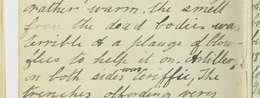 rather warm, the smell
from the dead bodies was
terrible & a plauge of blow-
flies to help it on. Artillery
on both sides very terrific, The
trenches affording very